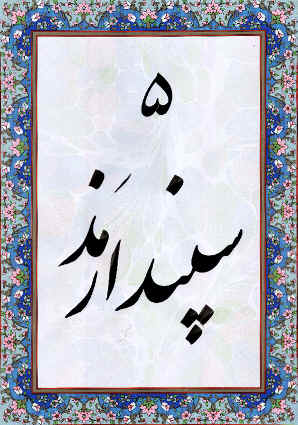 ۵
سپندارمذ